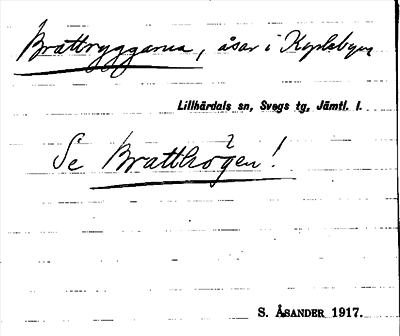 Brattryggarna, åsar i
Lillhärdals sn, Svegs tg, Jämtl. l.
Se Bratthögen!
S. ÅSANDER 1917.